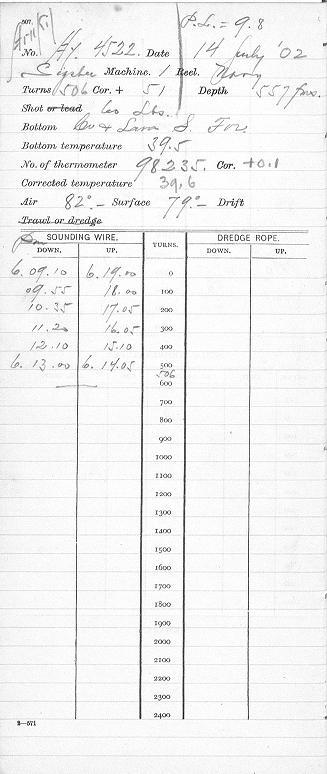 507.
P.L. = 9.8
No. Hy. 4522. Date 14 July '02
Sigsbee Machine. / Reel. Navy
Turns 506 Cor. + 51 Depth 557 fms.
Shot or lead 60 Lbs.
Bottom Co & Lava S. For.
Bottom temperature 39.5
No. of thermometer 98235. Cor. +0.1
Corrected temperature 39.6
Air 82° - Surface 79° - Drift
Trawl or dredge
pm
SOUNDING WIRE. TURNS. DREDGE ROPE.
DOWN. UP. DOWN. UP.
6. 09.10 6. 19.00 0
09.55 18.00 100
10.35 17.05 200
11.20 16.05 300
12.10 15.10 400
6. 13.00 6. 14.05 500
506
600
700
800
900
1000
1100
1200
1300
1400
1500
1600
1700
1800
1900
2000
2100
2200
2300
2400
2—571